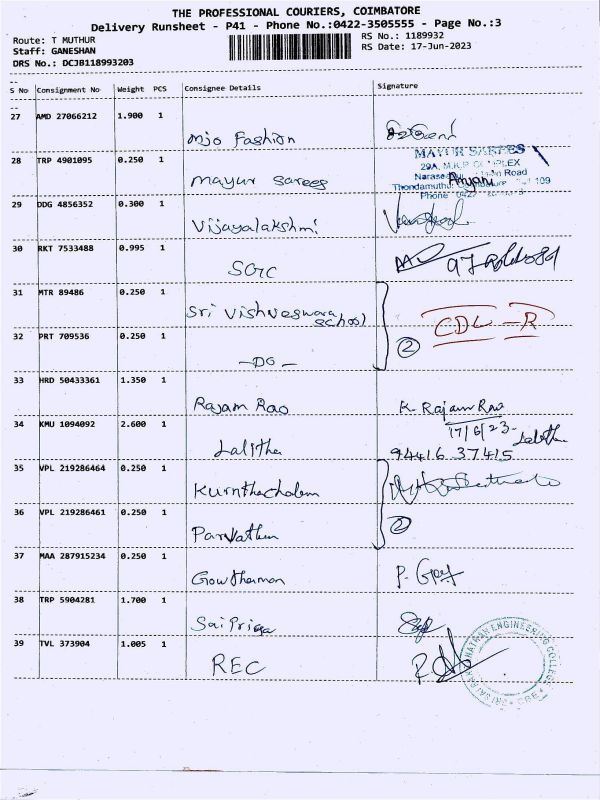 THE PROFESSIONAL COURIERS, COIMBATORE
Delivery Runsheet - P41 - Phone No.:0422-3505555 - Page No.:3
Route: T MUTHUR RS No.: 1189932
Staff: GANESHAN RS Date: 17-Jun-2023
DRS No.: DCJB118993203
S No Consignment No Weight PCS Consignee Details Signature
27 AMD 27066212 1.900 1
Mjo Fashion
28 TRP 4901095 0.250 1
MAYUR SAREES
29A, M.K.P. COMPLEX
Road
Mayur Sarees
109
Phone 0422
29 DDG 4856352 0.300 1
Vijayalakshmi
30 RKT 7533488 0.995 1
31 MTR 89486 0.250 1
Sri Vishveswara
School
CDL - R
32 PRT 709536 0.250 1
2
- DO -
33 HRD 50433361 1.350 1
Rajam Rao K. Rajam Rao
17/6/23
34 KMU 1094092 2.600 1
Lalitha
Lalitha 94416 37415
35 VPL 219286464 0.250 1
36 VPL 219286461 0.250 1
2
37 MAA 287915234 0.250 1
Gowthaman
38 TRP 5904281 1.700 1
Sai Priya
39 TVL 373904 1.005 1
REC
ENGINEERING COLLEGE